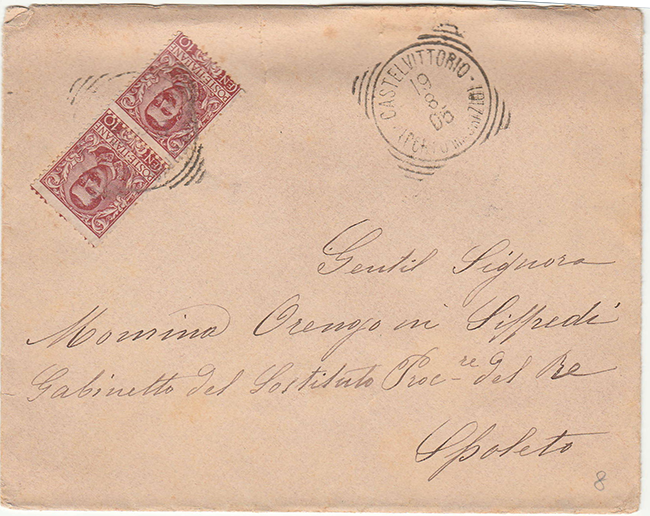 POSTE ITALIANE
CENT. 10
POSTE ITALIANE
CENT. 10
CASTELVITTORIO
19 8 05
Gentil Signora
Momina Orengo in Siffredi
Gabinetto del Sostituto Proc.re del Re
Spoleto
8